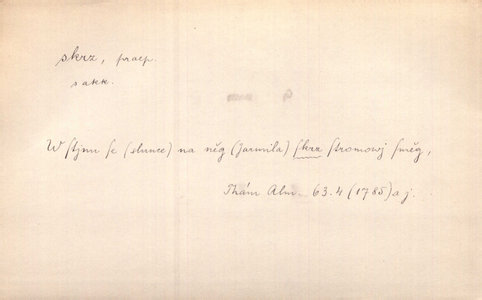 skrz, praep.
s akk.
W stjnu se (slunce) na něg (Jarmila) skrz stromowj směg,
Thám Alm. 63.4 (1785) a j.